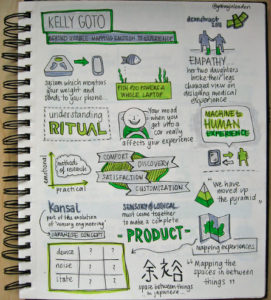 @gemmalondon
KELLY GOTO
BEYOND USABLE: MAPPING EMOTION TO EXPERIENCE
system which monitors
your weight and
sends to your phone...
FISH POO POWERS A
WHOLE LAPTOP
EMPATHY
her two daughters
broke their legs
changed view on
designing medical
experience
understanding
RITUAL
Your mood
when you
get into a
car really
affects your experience
MACHINE TO
HUMAN
EXPERIENCE
emotional
methods of
research
practical
COMFORT
DISCOVERY
SATISFACTION
CUSTOMIZATION
We have
moved up
the pyramid
Kansai
part of the evolution
of "sensory engineering"
JAPANESE CONCEPT
SENSORY & LOGICAL
must come together
to make a
- PRODUCT -
mapping experiences
dance ? ?
noise ? ?
state ? ?
space between things
in japanese
"Mapping the
spaces in between
things"